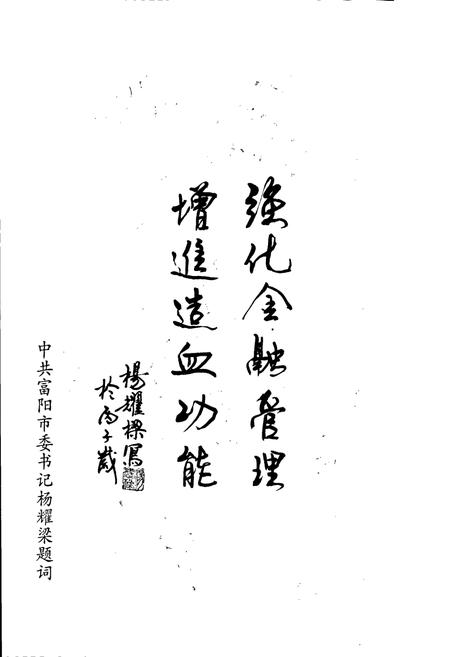 强化金融管理
增進造血功能
楊耀樑寫
於丙子歲
中共富阳市委书记杨耀梁题词